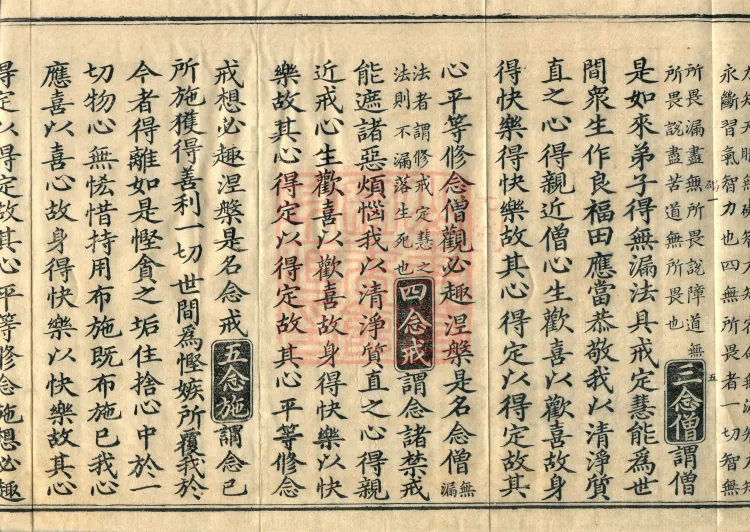 永斷習氣智力也四無所畏者一切智無
所畏漏盡無所畏說障道無
所畏說盡苦道無所畏也
三念僧謂僧
是如來弟子得無漏法具戒定慧能為世
間衆生作良福田應當恭敬我以清淨質
直之心得親近僧心生歡喜以歡喜故身
得快樂得快樂故其心得定以得定故其
心平等修念僧觀必趣涅槃是名念僧無漏
法者謂修戒定慧之
法則不漏落生死也
四念戒謂念諸禁戒
能遮諸惡煩惱我以清淨質直之心得親
近戒心生歡喜以歡喜故身得快樂以快
樂故其心得定以得定故其心平等修念
戒想必趣涅槃是名念戒五念施謂念已
所施獲得善利一切世間爲慳嫉所覆我於
今者得離如是慳貪之垢住捨心中於一
切物心無恡惜持用布施既布施已我心
應喜以喜心故身得快樂以快樂故其心
得定以得定故其心平等修念施想必趣